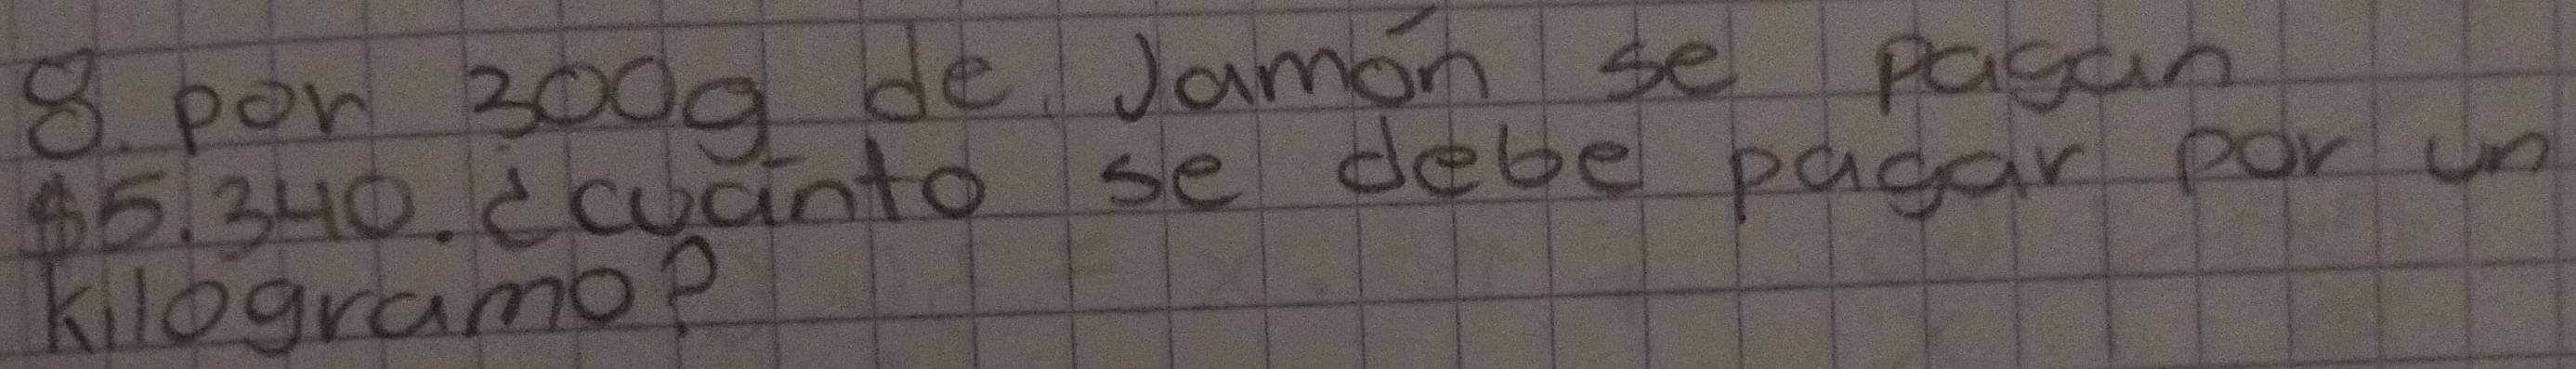 8. por 300g de Jamón se pagan
$5.340. ¿cuánto se debe pagar por un
kilogramo?